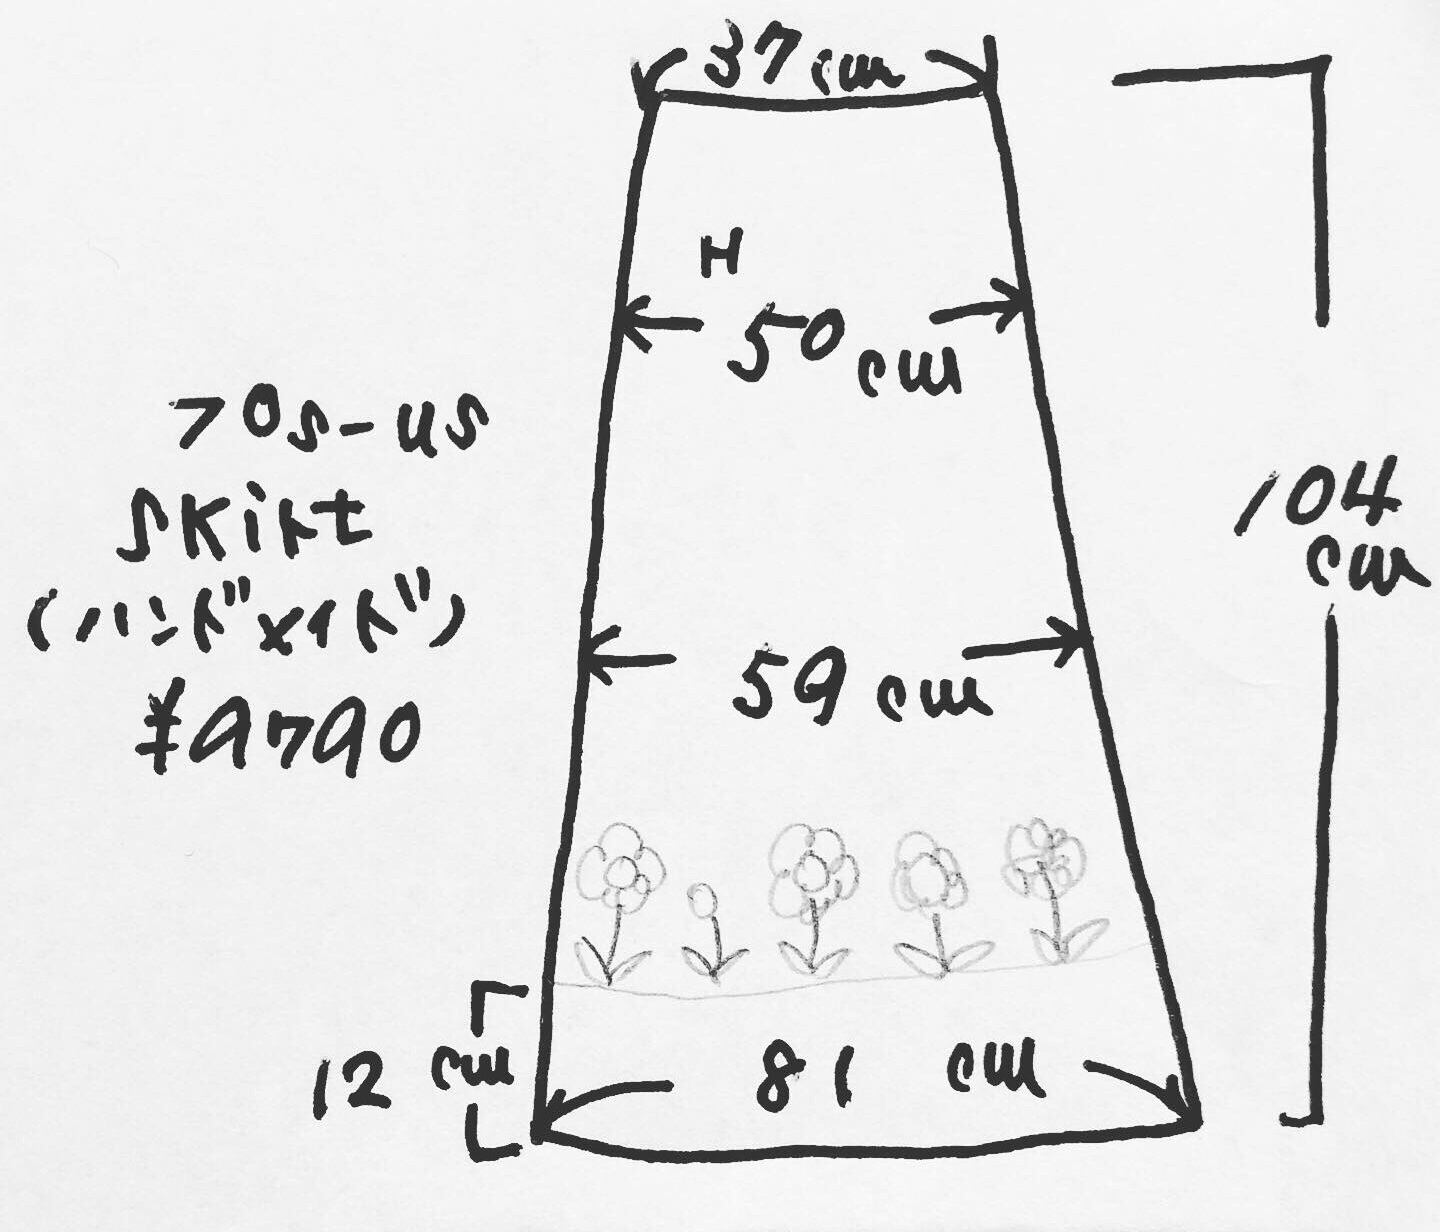 37cm
H
50cm
70s-us
skirt
(ハンドメイド)
¥9790
104
cm
59cm
12cm
81 cm